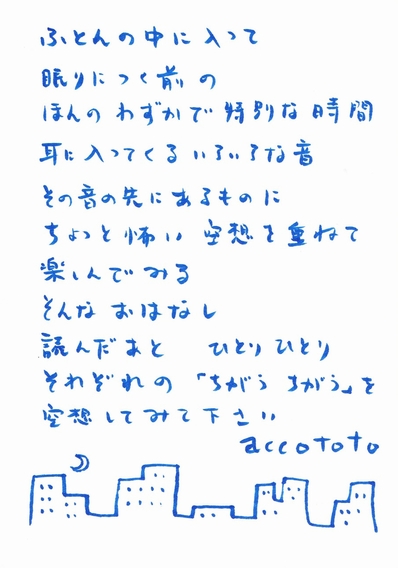 ふとんの中に入って
眠りにつく前の
ほんのわずかで特別な時間
耳に入ってくるいろいろな音
その音の先にあるものに
ちょっと怖い空想を重ねて
楽しんでみる
そんなおはなし
読んだあと ひとりひとり
それぞれの「ちがうちがう」を
空想してみて下さい
accototo